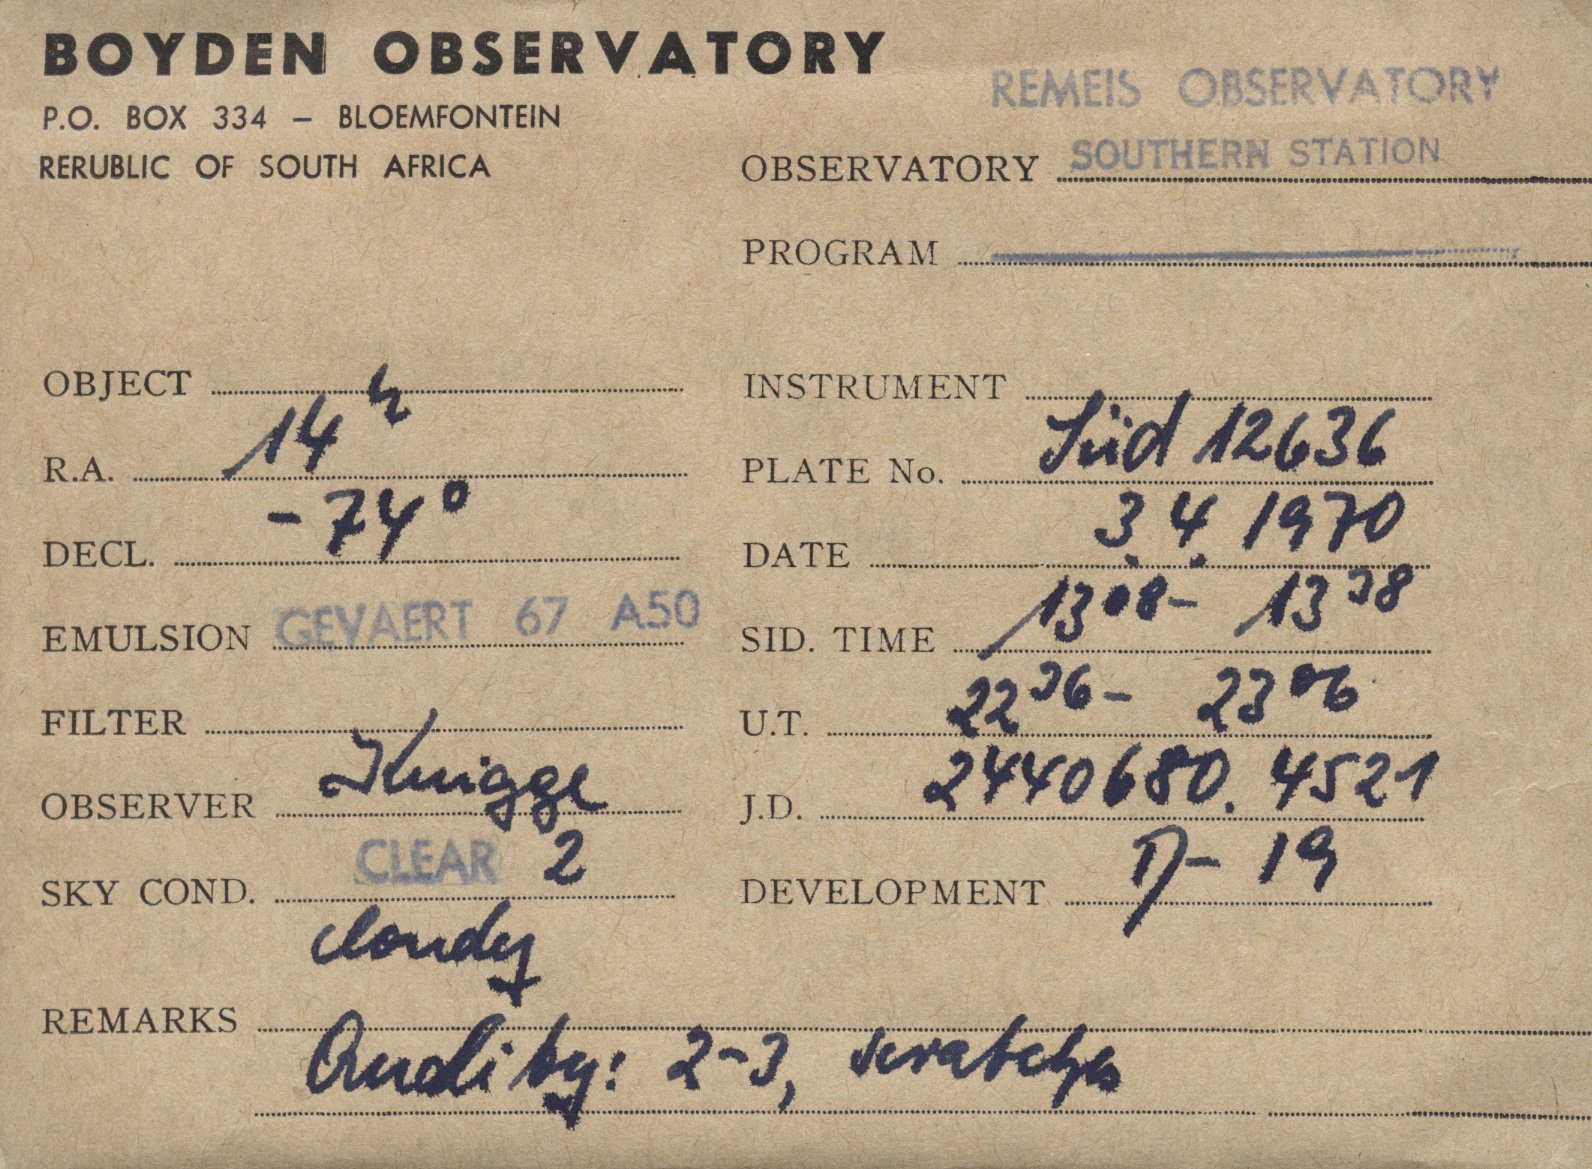 BOYDEN OBSERVATORY
P.O. BOX 334 – BLOEMFONTEIN
RERUBLIC OF SOUTH AFRICA
REMEIS OBSERVATORY
OBSERVATORY SOUTHERN STATION
PROGRAM
OBJECT
R.A. 14h
DECL. -74°
EMULSION GEVAERT 67 A50
FILTER
OBSERVER Knigge
SKY COND. CLEAR 2
cloudy
INSTRUMENT
PLATE No. Süd 12636
DATE 3.4.1970
SID. TIME 13 08 - 13 38
U.T. 22 36 - 23 06
J.D. 2440680.4521
DEVELOPMENT D-19
REMARKS
Quality: 2-3, scratches